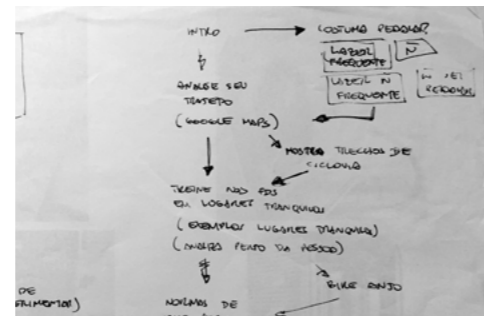 INTRO
COSTUMA PEDALAR?
LAZER
FREQUENTE
Ñ
LAZER Ñ
FREQUENTE
Ñ SEI
PEDALAR
ANALISE SEU
TRAJETO
(GOOGLE MAPS)
MOSTRA TRECHOS DE
CICLOVIA
TREINE NOS FDS
EM LUGARES TRANQUILOS
(EXEMPLOS LUGARES TRANQUILOS)
PERTO DA PESSOA)
BIKE ANJO
NORMAS DE
DE